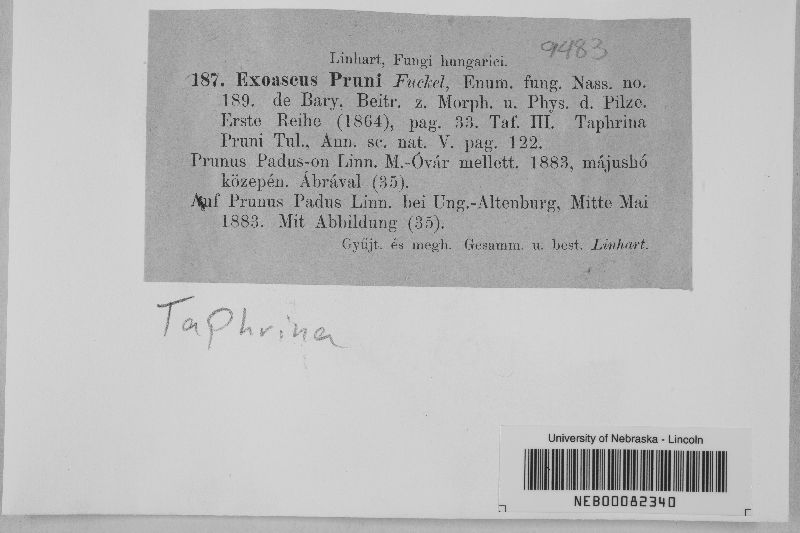 Linhart, Fungi hungarici.
9483
187. Exoascus Pruni Fuckel, Enum. fung. Nass. no.
189. de Bary. Beitr. z. Morph. u. Phys. d. Pilze.
Erste Reihe (1864), pag. 33. Taf. III. Taphrina
Pruni Tul., Ann. sc. nat. V. pag. 122.
Prunus Padus-on Linn. M.-Óvár mellett. 1883, májushó
közepén. Ábrával (35).
Auf Prunus Padus Linn. bei Ung.-Altenburg, Mitte Mai
1883. Mit Abbildung (35).
Gyüjt. és megh. Gesamm. u. best. Linhart.
Taphrina
University of Nebraska - Lincoln
NEB00082340